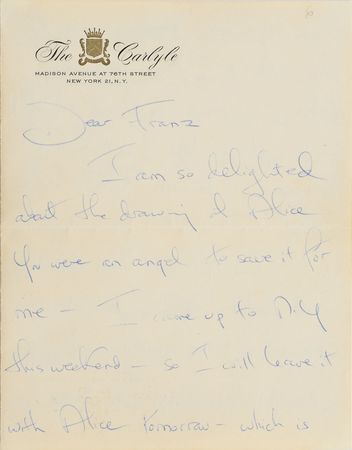 The Carlyle
MADISON AVENUE AT 76TH STREET
NEW YORK 21, N.Y.
Dear Franz
I am so delighted
about the drawing of Alice
You were an angel to save it for
me — I came up to N.Y
this weekend — so I will leave it
with Alice tomorrow — which is